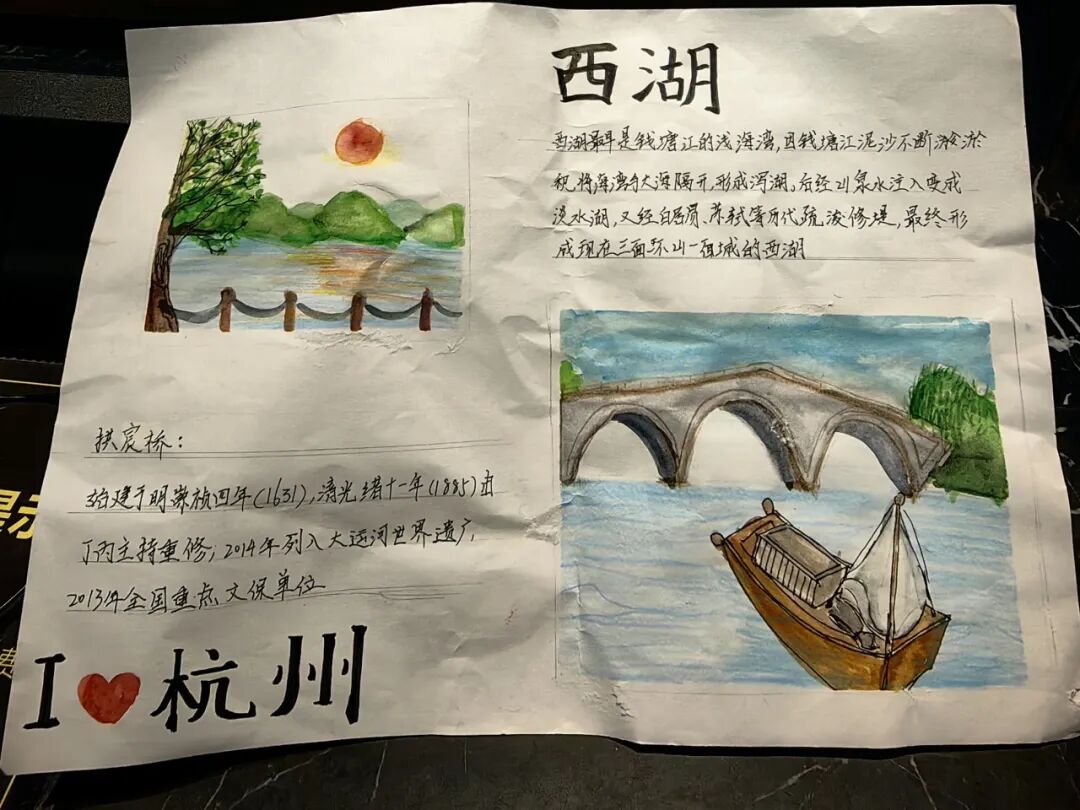 西湖
西湖最早是钱塘江的浅海湾,因钱塘江泥沙不断淤
积,将海湾与大海隔开,形成泻湖。后经山泉水注入变成
淡水湖,又经白居易、苏轼等历代疏浚修堤,最终形
成现在三面环山一面城的西湖
拱宸桥:
始建于明崇祯四年(1631),清光绪十一年(1885)由
丁丙主持重修;2014年列入大运河世界遗产,
2013年全国重点文保单位
I 杭州